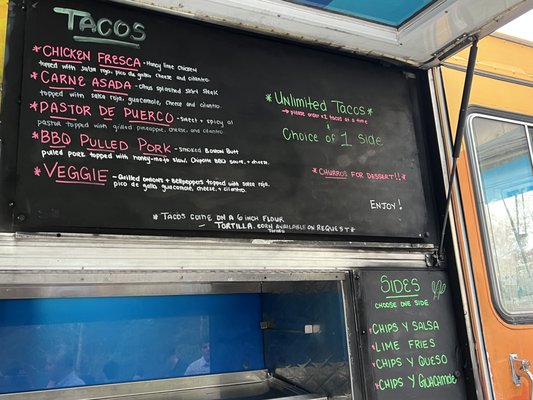 TACOS
*CHICKEN FRESCA - Honey lime chicken
topped with salsa roja, pico de gallo, cheese and cilantro.
*CARNE ASADA - Citrus splashed skirt steak
topped with salsa roja, guacamole, cheese and cilantro.
*PASTOR DE PUERCO - Sweet + spicy al
pastor topped with grilled pineapple, cheese, and cilantro.
*BBQ PULLED PORK - Smoked Boston Butt
pulled pork topped with honey-mojo slaw, chipotle BBQ sauce, + cheese.
*VEGGIE - Grilled onions + bellpeppers topped with salsa roja,
pico de gallo, guacamole, cheese, and cilantro.
*TACOS COME ON A 6 INCH FLOUR
TORTILLA. CORN AVAILABLE ON REQUEST*
*Unlimited Tacos*
please order 2 tacos at a time
&
Choice of 1 side
*CHURROS FOR DESSERT!!*
ENJOY!
SIDES
CHOOSE ONE
*CHIPS Y SALSA
*LIME FRIES
*CHIPS Y QUESO
*CHIPS Y GUACAMOLE